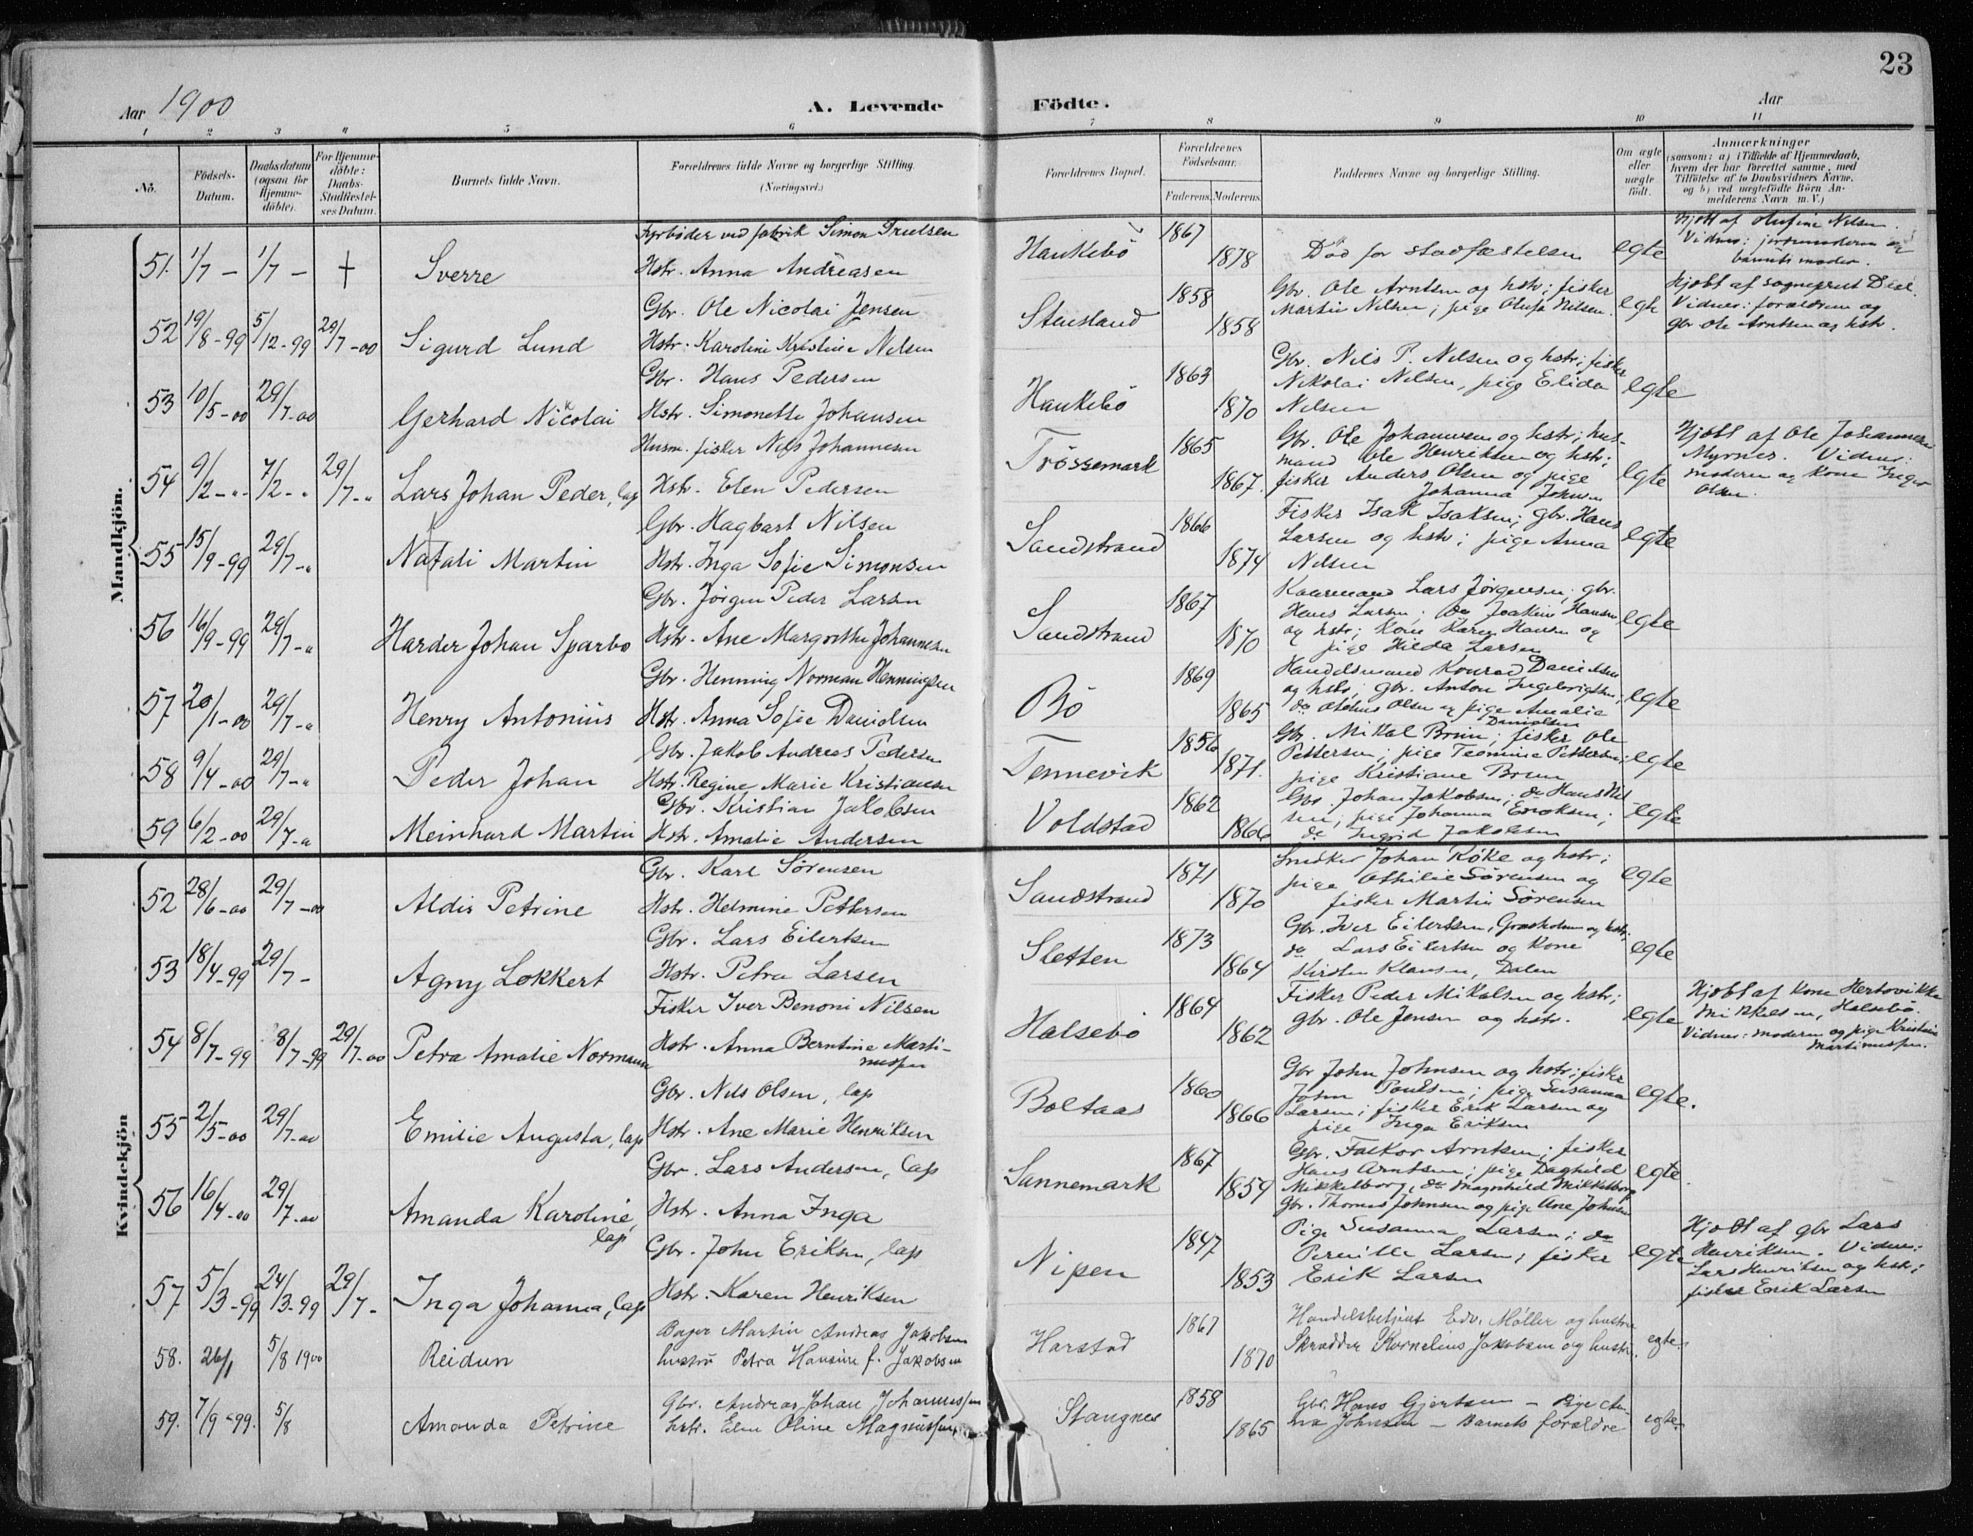 23
Aar 1900
A. Levende Födte.
Aar
1 2 3 4 5 6 7 8 9 10 11
No.
Födsels-Datum.
Daabsdatum (ogsaa for Hjemme-döbte).
For Hjemme-döbte: Daabs-Stadfæstel-ses Datum.
Barnets fulde Navn.
Forældrenes fulde Navne og borgerlige Stilling. (Næringsvei.)
Forældrenes Bopæl.
Forældrenes Födselsaar.
Faderens. Moderens.
Faddernes Navne og borgerlige Stilling.
Om ægte eller uægte født.
Anmærkninger
(saasom: a) i Tilfælde af Hjemmedaab, hvem der har forrettet samme, med Tilföielse af to Daabsvidners Navne, og b) ved uægtefödte Börn Anmelderens Navn m. V.)
Mandkjön.
51. 1/7 - 1/7 - + Sverre
Fyrböder ved fabrik Simon Truelsen
Hstr. Anna Andreasen
Haukebö 1867 1878
Död før stadfæstelsen
egte
Hjdbt af Olufine Nilsen.
Vidner: jordmoderen og
barnets moder.
52 19/8-99 5/12-99 29/7-00 Sigurd Lund
Gbr. Ole Nicolai Jensen
Hstr. Karoline Kristine Nilsen
Stensland 1858 1858
Gbr. Ole Arntsen og hstr; fisker
Martin Nilsen; pige Olufa Nilsen.
egte
Hjdbt af sogneprest
Vidner: forældren og
gbr Ole Arntsen og hstr.
53 10/5-00 29/7-00 Gerhard Nicolai
Gbr. Hans Pedersen
Hstr. Simonette Johansen
Haukebö 1863 1870
Gbr. Nils P. Nilsen og hstr; fisker
Nikolai Nilsen, pige Elida
Nilsen
egte
54 9/2-" 7/2-" 29/7-" Lars Johan Peder, lap
Husm. fisker Nils Johannesen
Hstr. Elen Pedersen
Trössemark 1865 1867.
Gbr. Ole Johannesen og hstr; hus-
mand Ole Henriksen og hstr;
fisker Anders Olsen og pige
Johanna Johnsen
egte
Hjdbt af Ole Johannesen
Myrnes. Vidner:
moderen og kone Inger
Olsen.
55 15/9-99 29/7-" Natali Martin
Gbr. Hagbart Nilsen
Hstr. Inga Sofie Simonsen
Sandstrand 1866 1874
Fisker Isak Isaksen; gbr. Hans
Larsen og hstr; pige Anna
Nilsen
egte
56 16/9-99 29/7-" Harder Johan Sparbo
Gbr. Jörgen Peder Larsen
Hstr. Ane Margrethe Johannesen
Sandstrand 1867 1870
Kaarmand Lars Jørgensen; gbr.
Hans Larsen; do Joakim Hansen
og hstr; Kone Karen Hansen og
pige Hilda Larsen
egte
57 20/1-00 29/7-" Henry Antonius
Gbr. Henning Norman Henningsen
Hstr. Anna Sofie Danielsen
Bö 1869 1865
Handelsmand Konrad Danielsen
og hstr; gbr. Anton Ingebrigtsen;
do Olsen og pige Amalie
Danielsen
egte
58 9/4-00 29/7-" Peder Johan
Gbr. Jakob Andreas Pedersen
Hstr. Regine Marie Kristiansen
Tennevik 1856 1871.
Gbr. Mikal Brun; fisker Ole
Pettersen; pige Teomine Pettersen;
pige Kristiane Brun
egte
59 6/2-00 29/7-" Meinhard Martin
Gbr. Kristian Jakobsen
Hstr. Amalie Andersen
Voldstad 1862 1866
Gbr. Johan Jakobsen; do Hans Nil-
sen; pige Johanna Enoksen;
do Ingrid Jakobsen
egte
Kvindekjön
52 28/6-00 29/7-00 Aldis Petrine
Gbr. Karl Sørensen
Hstr. Helmine Pettersen
Sandstrand 1871 1870
Snedker Johan Röke og hstr;
pige Othilie Sørensen og
fisker Martin Sørensen
egte
53 18/4-99 29/7- Agny Lokkert
Gbr. Lars Eilertsen
Hstr. Petra Larsen
Sletten 1873 1864
Gbr. Iver Eilertsen, Grasholmen og hstr;
do Lars Eilertsen og Kone
Kirsten Klausen, Dalen
egte
54 8/7-99 8/7-99 29/7-00 Petra Amalie Normann
Fisker Iver Benoni Nilsen
Hstr. Anna Berntine Marti-
nussen
Halsebö 1864 1862
Fisker Peder Mikalsen og hstr;
gbr. Ole Jensen og hstr.
egte
Hjdbt af Kone Hertovikke
Mikkelsen, Halsebö.
Vidner: moderen og pige Kristine
Martinussen.
55 2/5-00 29/7-00 Emilie Augusta, lap
Gbr. Nils Olsen, lap
Hstr. Ane Marie Henriksen
Boltaas 1860 1866
Gbr John Johnsen og hstr; fisker
John Paulsen; pige Susanna
Larsen; fisker Erik Larsen og
pige Inga Eriksen
egte.
56 16/4-00 29/7-00 Amanda Karoline, lap
Gbr. Lars Andersen, lap
Hstr. Anna Inga
Sannemark 1867 1859
Gbr. Falkor Arntsen; fisker
Hans Arntsen; pige Daghild
Mikkelborg, do Magnhild Mikkelborg
Gbr. Thomas Johnsen og pige Ane Johnsen
egte.
57 5/3-99 24/3-99 29/7- Inga Johanna, lap
Gbr. John Eriksen, lap
Hstr. Karen Henriksen
Nipen 1847 1853
Pige Susanna Larsen; do
Pernille Larsen; fisker
Erik Larsen
egte
Hjdbt af gbr Lars
Henriksen. Vidner:
Lars Henriksen og hstr;
fisker Erik Larsen
58. 26/1 5/8 1900 Reidun
Bager Martin Andreas Jakobsen
hustru Petra Hansine f. Jakobsen
Harstad 1867 1870
Handelsbetjent Edv. Møller og hustru
Skrædder Kornelius Jakobsen og hustru.
egte.
59. 7/9-99. 5/8 Amanda Petrine
Gbr. Andreas Johan Johannessen
hstr. Elen Oline Magnussen
Stangnes 1858 1865
Gbr. Hans Gjertsen - Pige
Johnsen - Barnets forældre
egte.